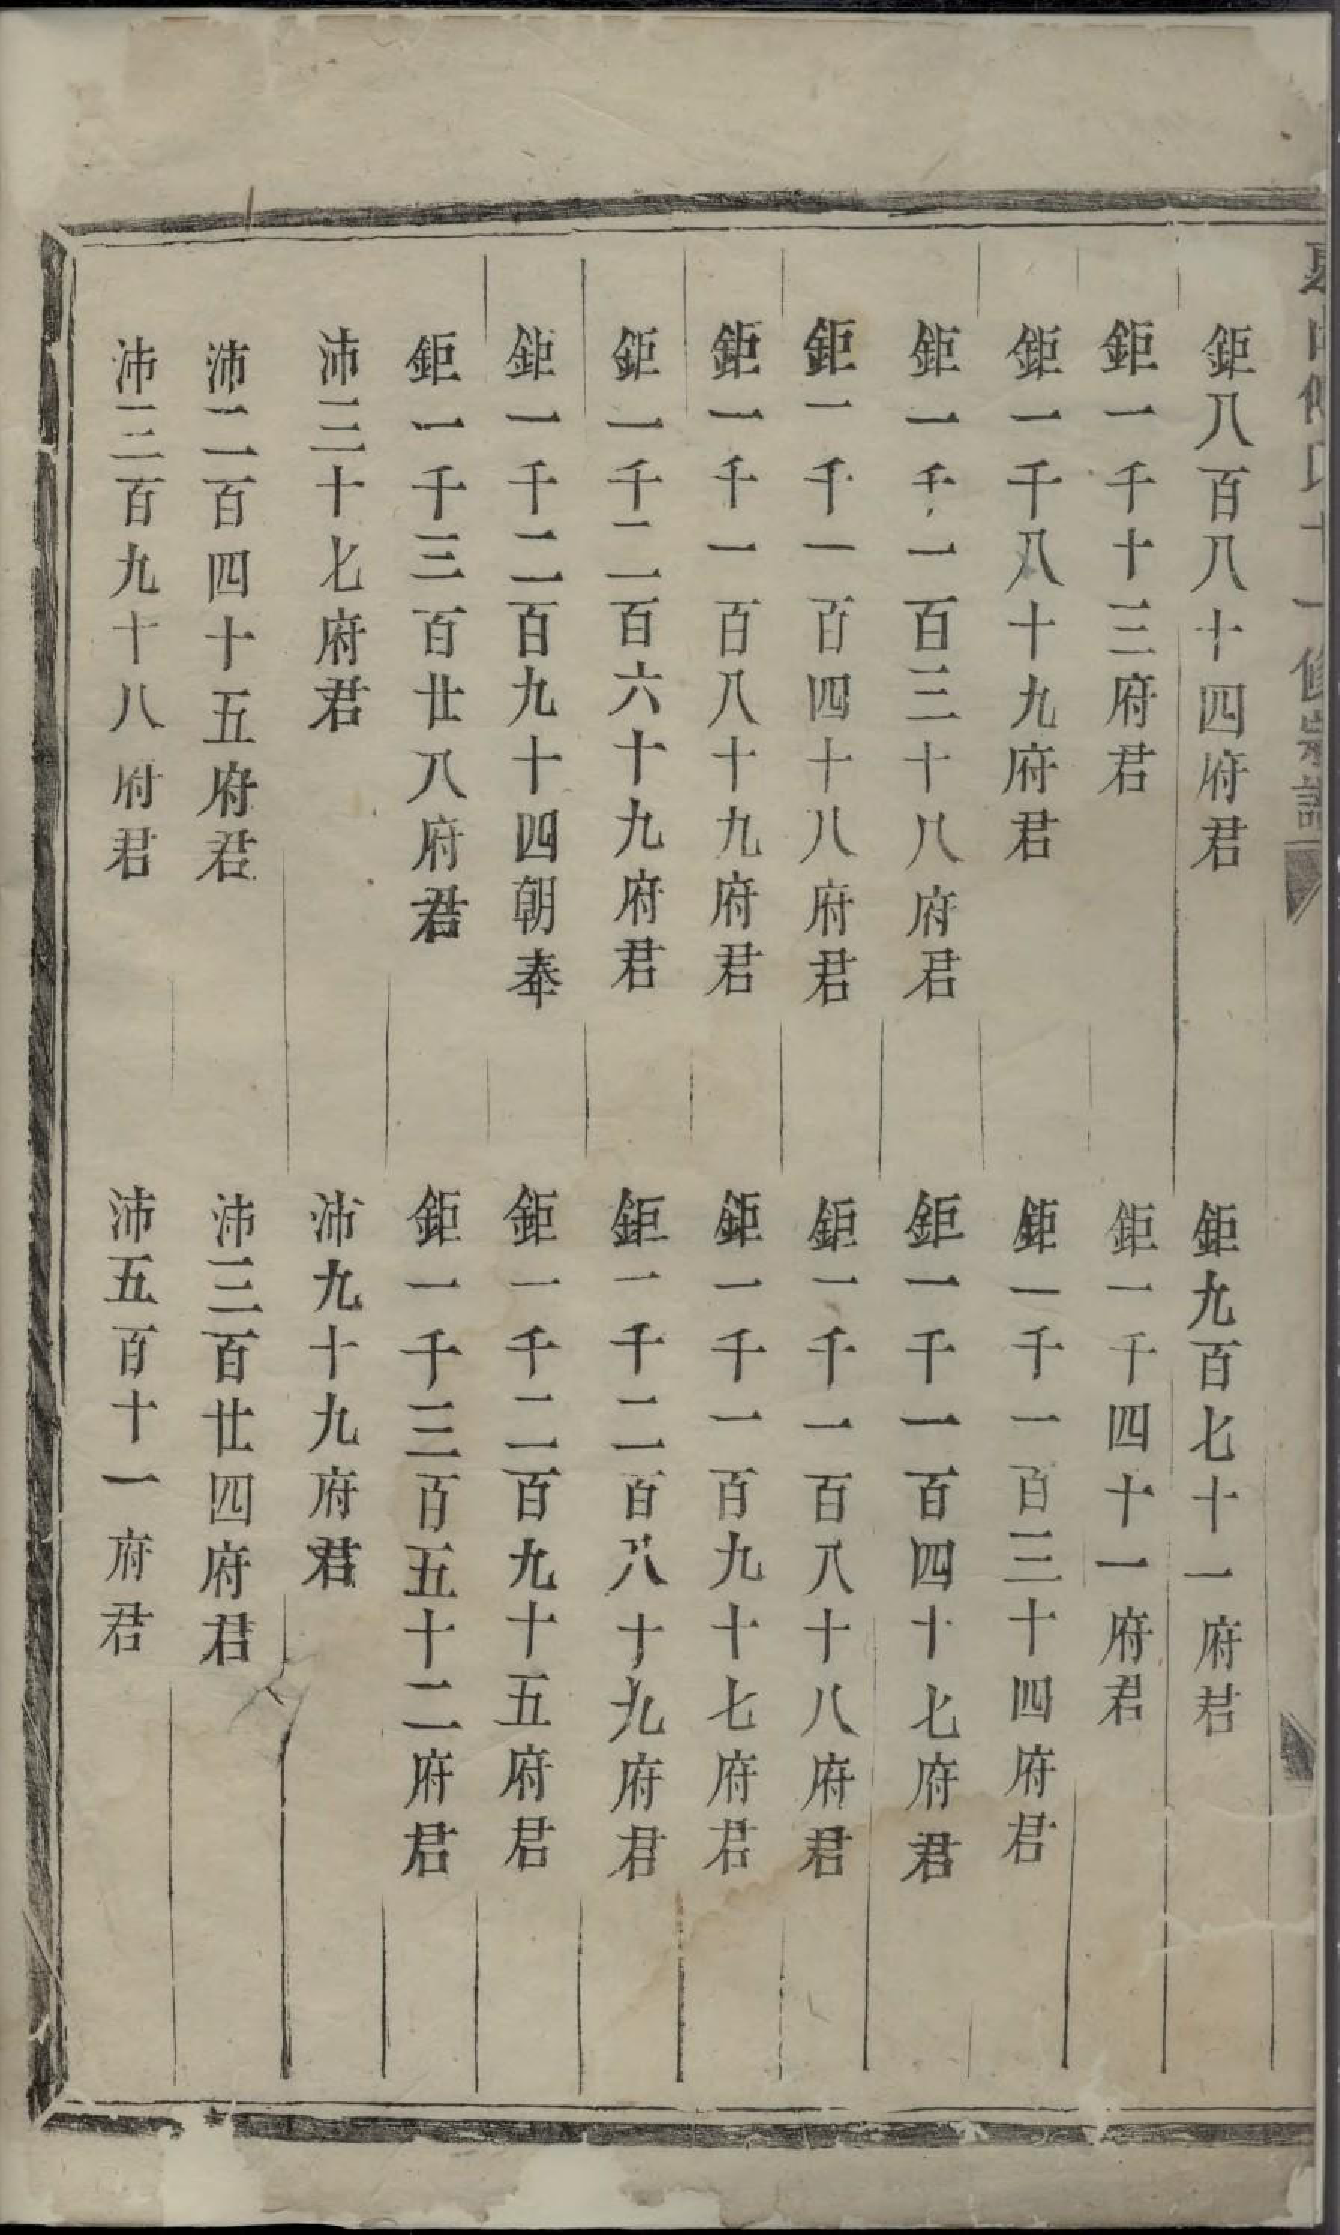 氏十一修宗譜
鉅八百八十四府君 鉅九百七十一府君
鉅一千十三府君 鉅一千四十一府君
鉅一千八十九府君 鉅一千一百三十四府君
鉅一千一百三十八府君 鉅一千一百四十七府君
鉅一千一百四十八府君 鉅一千一百八十八府君
鉅一千一百八十九府君 鉅一千一百九十七府君
鉅一千二百六十九府君 鉅一千二百八十九府君
鉅一千二百九十四朝奉 鉅一千二百九十五府君
鉅一千三百廿八府君 鉅一千三百五十二府君
沛三十七府君 沛九十九府君
沛二百四十五府君 沛三百廿四府君
沛三百九十八府君 沛五百十一府君